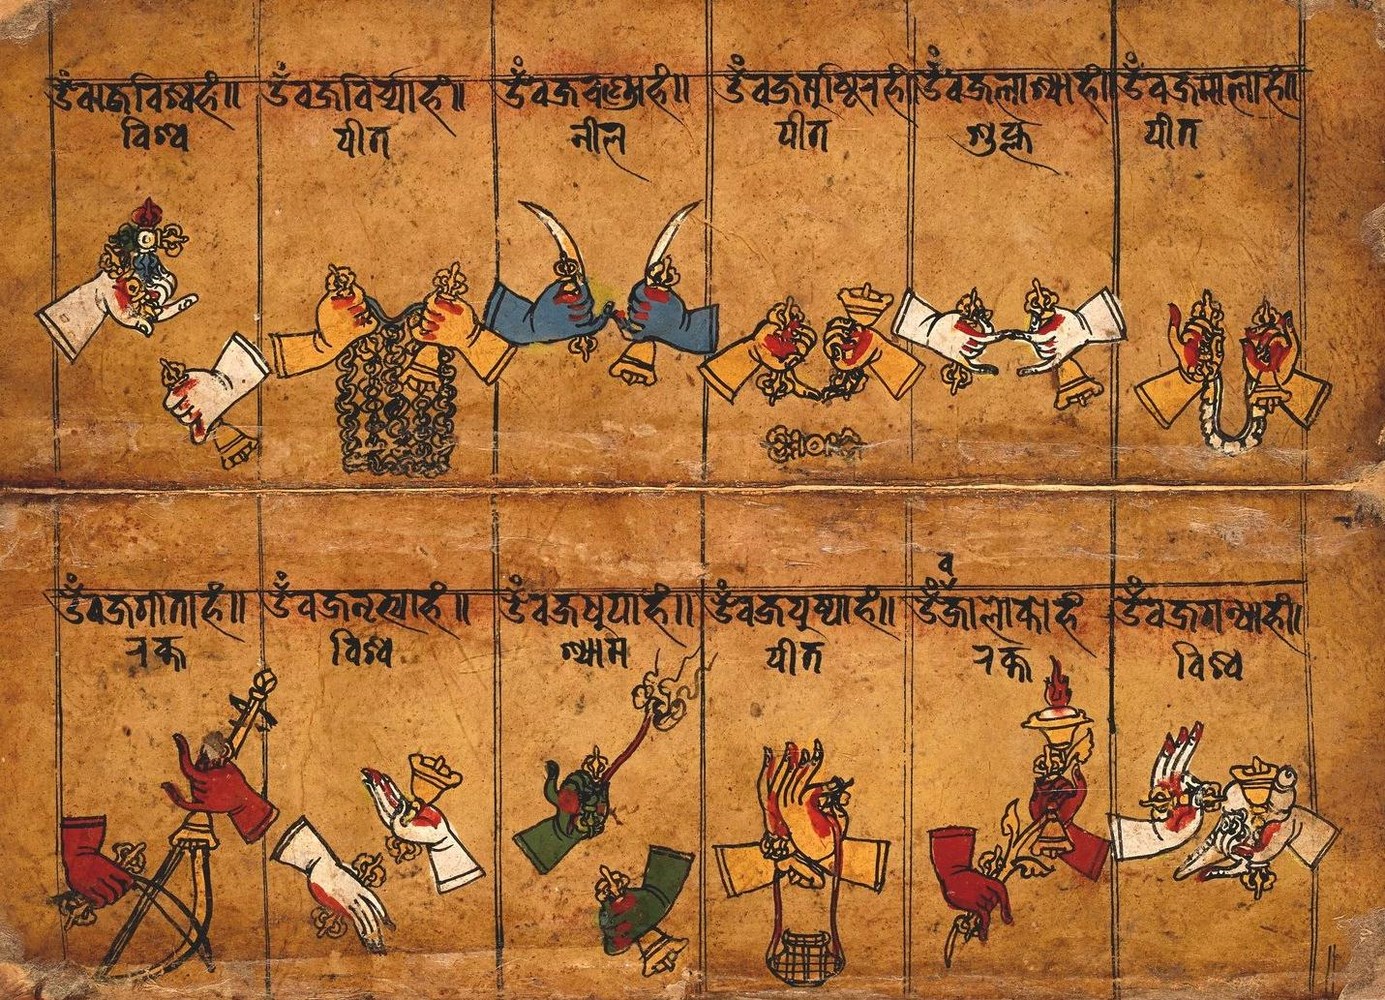 ॐ वज्रविश्वहं॥
विश्व
ॐ वज्रविर्य्याहं॥
पीत
ॐ वज्रचण्डाहं॥
नील
ॐ वज्रमुष्टिरहं॥
पीत
ॐ वज्रलाश्याहं॥
शुक्ल
ॐ वज्रमालाहं॥
पीत
ॐ वज्रगीताहं॥
रक्त
ॐ वज्रनृत्याहं॥
विश्व
ॐ वज्रधुपाहं॥
श्याम
ॐ वज्रपुष्पाहं॥
पीत
ॐ वज्रालोकाहं
रक्त
ॐ वज्रगन्धाहं॥
विश्व